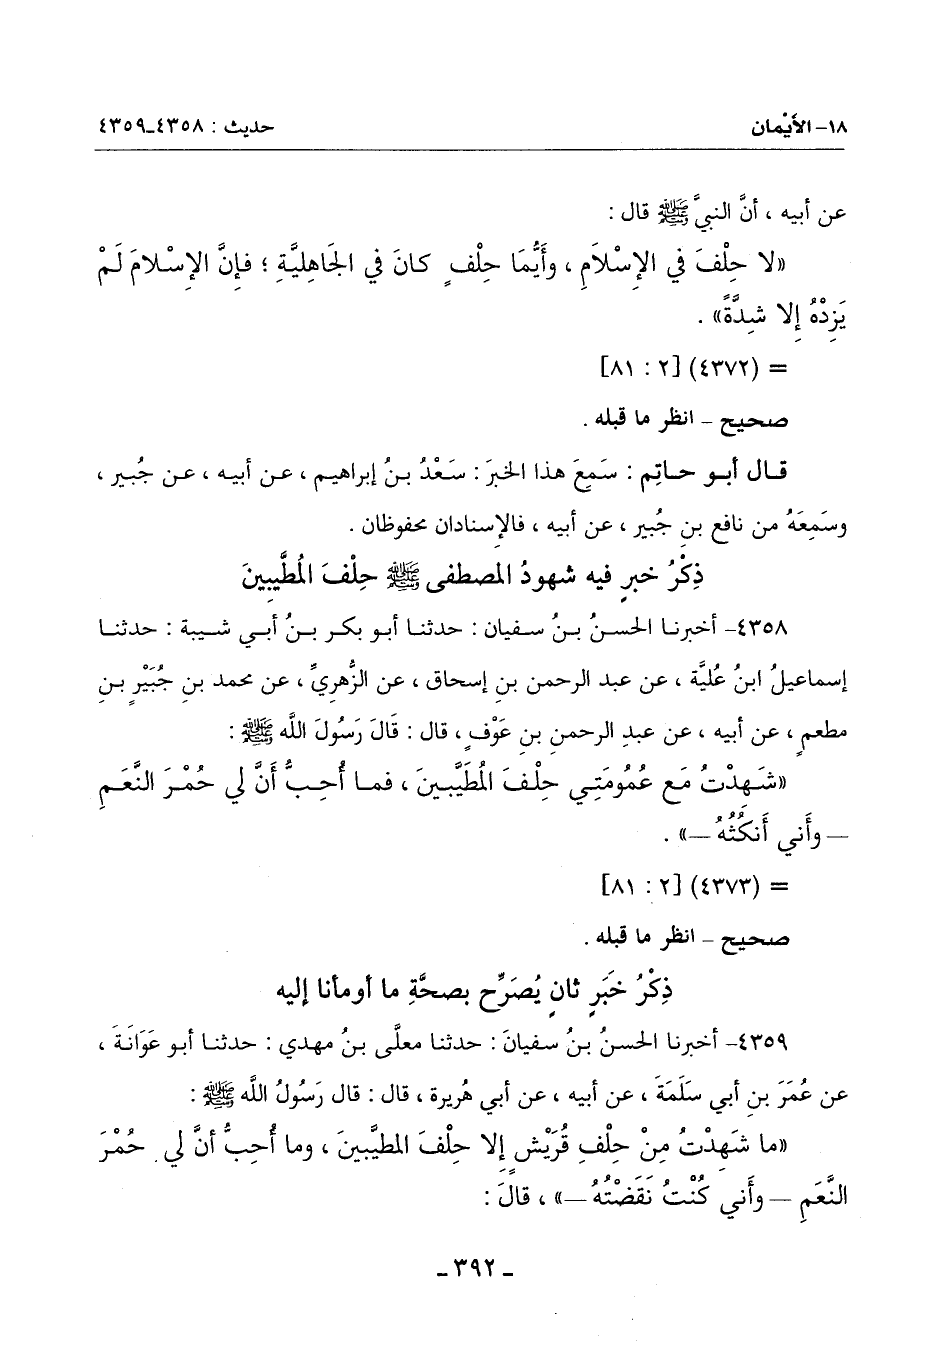 ١٨- الأَيْمان حديث : ٤٣٥٨ـ٤٣٥٩
عن أبيه ، أنَّ النبيَّ ﷺ قال :
«لا حِلْفَ في الإِسْلامِ ، وأَيُّمَا حِلْفٍ كانَ في الجَاهِليَّةِ ؛ فإِنَّ الإِسْلامَ لَمْ
يَزِدْهُ إِلا شِدَّةً» .
= (٤٣٧٢) [٢ : ٨١]
صحيح – انظر ما قبله .
قال أبو حاتِم : سَمِعَ هذا الخبرَ : سَعْدُ بنُ إبراهيم ، عن أبيه ، عن جُبير ،
وسَمِعَهُ من نافع بنِ جُبير ، عن أبيه ، فالإسنادان محفوظان .
ذِكْرُ خبرٍ فيه شهودُ المصطفى ﷺ حِلْفَ المُطَّيبينَ
٤٣٥٨- أخبرنا الحسنُ بنُ سفيان : حدثنا أبو بكر بنُ أبي شيبة : حدثنا
إسماعيلُ ابنُ عُليَّة ، عن عبد الرحمن بنِ إسحاق ، عن الزُّهريِّ ، عن محمد بنِ جُبَيْرِ بنِ
مطعمٍ ، عن أبيه ، عن عبدِ الرحمنِ بنِ عَوْفٍ ، قال : قَالَ رَسُولَ اللَّه ﷺ :
«شَهِدْتُ مَع عُمُومَتِي حِلْفَ المُطَيَّبينَ ، فما أُحِبُّ أَنَّ لي حُمْرَ النَّعَمِ
— وأَني أَنكُثُهُ —» .
= (٤٣٧٣) [٢ : ٨١]
صحيح – انظر ما قبله .
ذِكْرُ خَبَرٍ ثانٍ يُصَرِّح بصحَّةِ ما أومأنا إليه
٤٣٥٩- أخبرنا الحسنُ بنُ سفيانَ : حدثنا معلَّى بنُ مهدي : حدثنا أبو عَوَانَةَ ،
عن عُمَرَ بنِ أبي سَلَمَةَ ، عن أبيه ، عن أبي هُريرة ، قال : قال رَسُولُ اللَّه ﷺ :
«ما شَهِدْتُ مِنْ حِلْفِ قُرَيْشٍ إلا حِلْفَ المطيَّبينَ ، وما أُحِبُّ أنَّ لي حُمْرَ
النَّعَمِ — وأَني كُنْتُ نَقَضْتُهُ —» ، قالَ :
ـ ٣٩٢ ـ